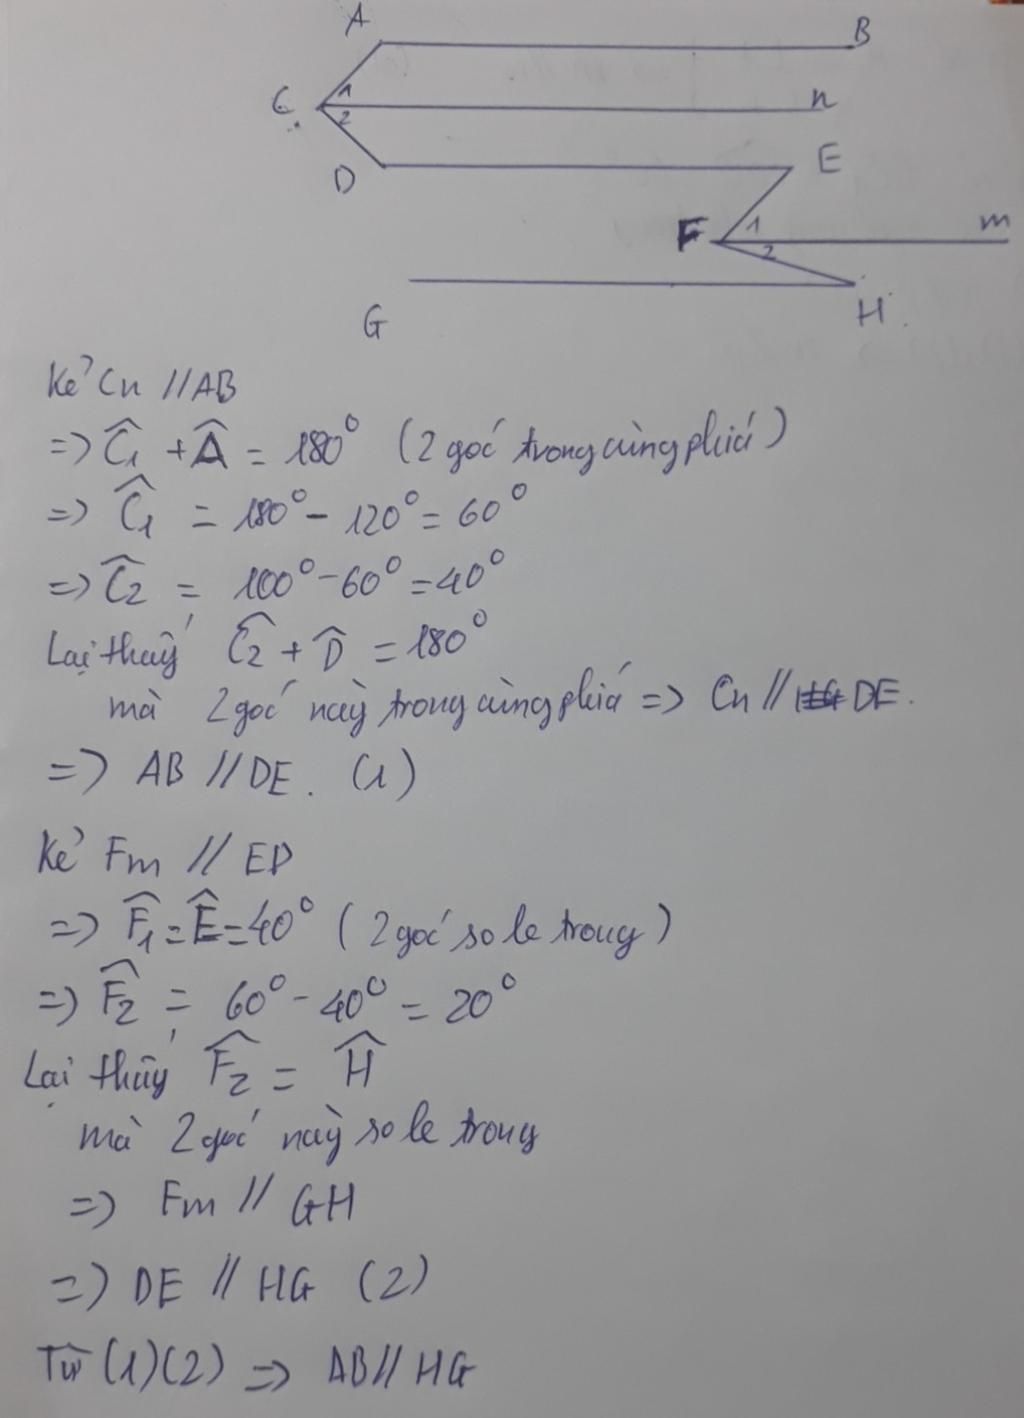 A
B
C
1
2
n
D
E
F
1
2
m
G
H
Kẻ Cn // AB
=> Ĉ₁ + Â = 180° (2 góc trong cùng phía)
=> Ĉ₁ = 180° - 120° = 60°
=> Ĉ₂ = 100° - 60° = 40°
Lại thấy Ĉ₂ + D̂ = 180°
mà 2 góc này trong cùng phía => Cn // DE.
=> AB // DE. (1)
Kẻ Fm // ED
=> F̂₁ = Ê = 40° (2 góc so le trong)
=> F̂₂ = 60° - 40° = 20°
Lại thấy F̂₂ = Ĥ
mà 2 góc này so le trong
=> Fm // GH
=> DE // HG (2)
Từ (1)(2) => AB // HG